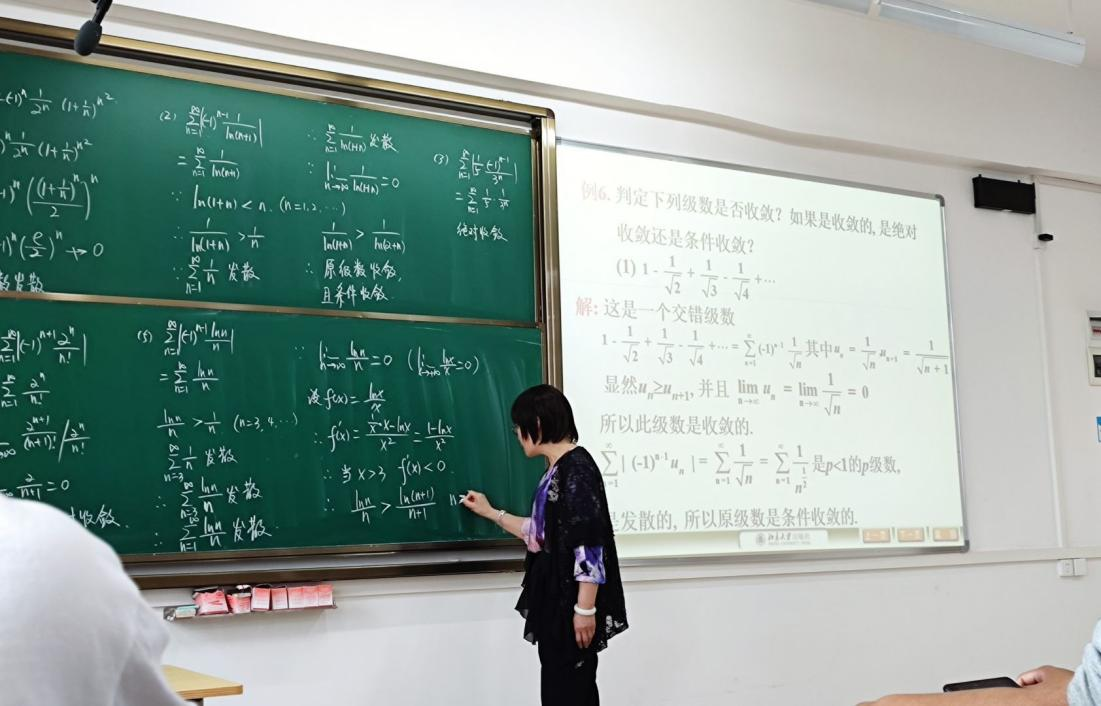 (-1)ⁿ 1/2ⁿ (1+1/n)^n²
1/2ⁿ (1+1/n)^n²
((1+1/n)ⁿ/2)ⁿ
(e/2)ⁿ ↛ 0
发散
(2) ∑_{n=1}^∞ |(-1)^{n-1} 1/ln(n+1)|
= ∑_{n=1}^∞ 1/ln(n+1)
∵ ln(1+n) < n. (n=1,2,…)
∴ 1/ln(1+n) > 1/n
∵ ∑_{n=1}^∞ 1/n 发散
∴ ∑_{n=1}^∞ 1/ln(1+n) 发散
∵ lim_{n→∞} 1/ln(1+n) = 0
1/ln(1+n) > 1/ln(2+n)
∴ 原级数收敛
且条件收敛.
(3) ∑_{n=1}^∞ |1/5 (-1)^{n-1}/3ⁿ|
= ∑_{n=1}^∞ 1/5 · 1/3ⁿ
绝对收敛
∑_{n=1}^∞ |(-1)^{n+1} 2ⁿ/n!|
∑_{n=1}^∞ 2ⁿ/n!
2^{n+1}/(n+1)! / 2ⁿ/n!
2/(n+1) = 0
收敛.
(5) ∑_{n=1}^∞ |(-1)^{n-1} ln n/n|
= ∑_{n=1}^∞ ln n/n
ln n/n > 1/n (n=3,4,…)
∑_{n=3}^∞ 1/n 发散
∴ ∑_{n=3}^∞ ln n/n 发散
∴ ∑_{n=1}^∞ ln n/n 发散
∵ lim_{n→∞} ln n/n = 0 (lim_{x→+∞} ln x/x = 0)
设 f(x) = ln x/x
∴ f'(x) = (1/x·x-ln x)/x² = (1-ln x)/x²
∴ 当 x>3 f'(x)<0
∴ ln n/n > ln(n+1)/(n+1) n≥
例6. 判定下列级数是否收敛？如果是收敛的, 是绝对
收敛还是条件收敛？
(1) 1 - 1/√2 + 1/√3 - 1/√4 + ⋯
解: 这是一个交错级数
1 - 1/√2 + 1/√3 - 1/√4 + ⋯ = ∑_{n=1}^∞ (-1)^{n-1} 1/√n 其中 uₙ = 1/√n, uₙ₊₁ = 1/√(n+1)
显然 uₙ≥uₙ₊₁, 并且 lim_{n→∞} uₙ = lim_{n→∞} 1/√n = 0
所以此级数是收敛的.
∑_{n=1}^∞ | (-1)^{n-1} uₙ | = ∑_{n=1}^∞ 1/√n = ∑_{n=1}^∞ 1/n^{1/2} 是p<1的p级数,
是发散的, 所以原级数是条件收敛的.
北京大学出版社